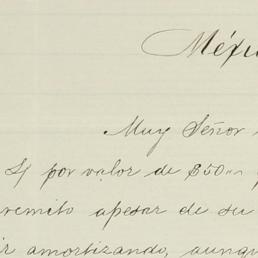 Méxi
Muy Señor
por valor de $50
remito apesar de su
ir amortizando, aunqu